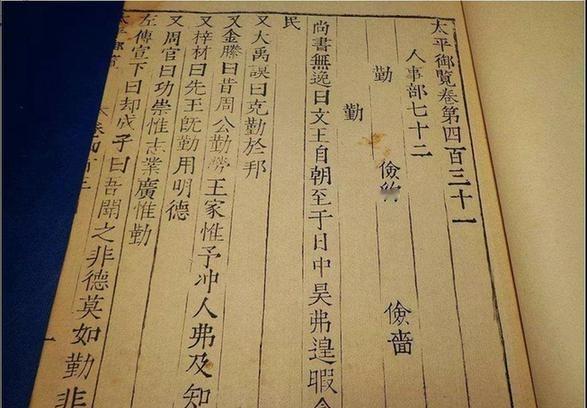 太平御覽卷第四百三十一
人事部七十二
勤 儉約 儉嗇
勤
尚書無逸曰文王自朝至于日中昊弗遑暇
民
又大禹謨曰克勤於邦
又金縢曰昔周公勤勞王家惟予冲人弗及知
又梓材曰先王既勤用明德
又周官曰功崇惟志業廣惟勤
左傳宣下曰却成子曰吾聞之非德莫如勤非